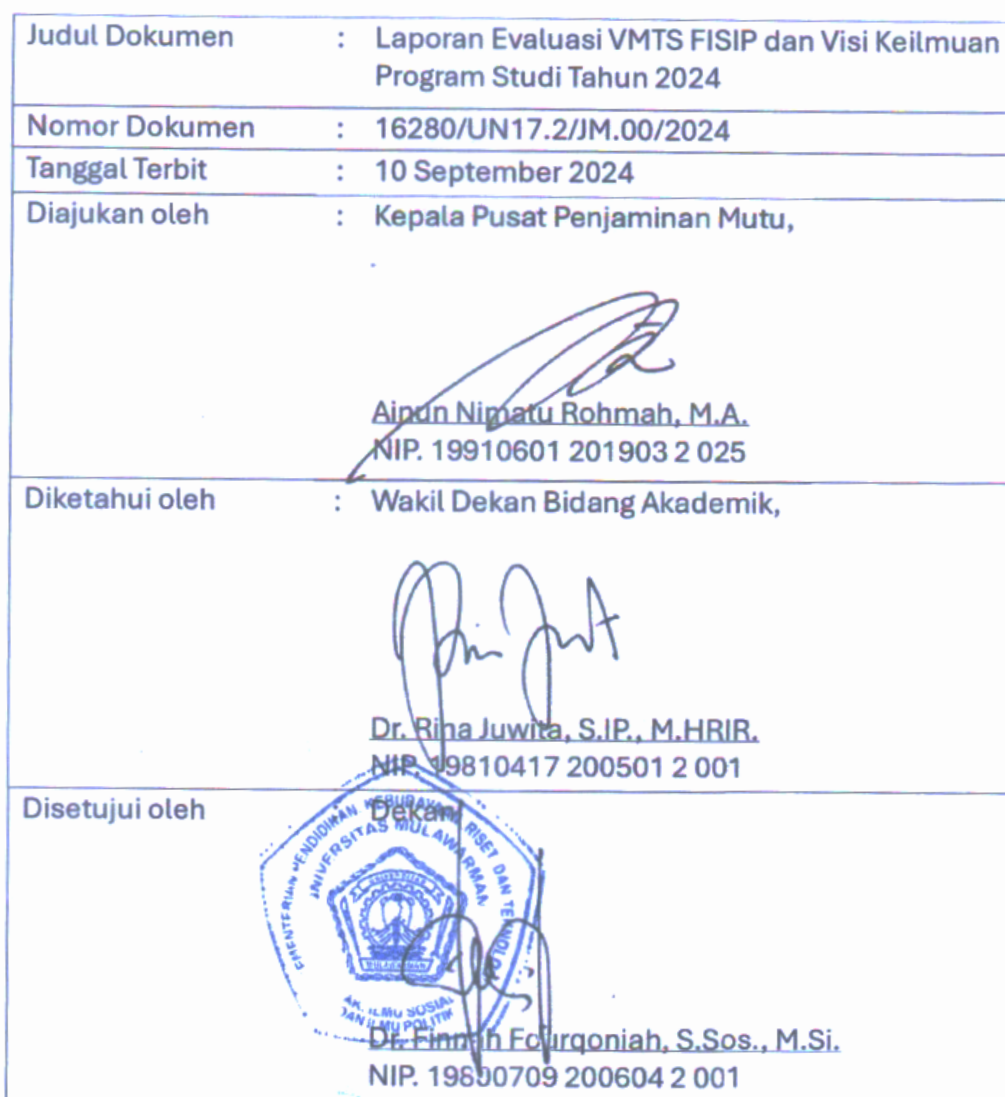 Judul Dokumen : Laporan Evaluasi VMTS FISIP dan Visi Keilmuan
Program Studi Tahun 2024
Nomor Dokumen : 16280/UN17.2/JM.00/2024
Tanggal Terbit : 10 September 2024
Diajukan oleh : Kepala Pusat Penjaminan Mutu,
Ainun Nimatu Rohmah, M.A.
NIP. 19910601 201903 2 025
Diketahui oleh : Wakil Dekan Bidang Akademik,
Dr. Rina Juwita, S.IP., M.HRIR.
NIP. 19810417 200501 2 001
Disetujui oleh Dekan
KEBUDAYAAN RISET DAN
PENDIDIKAN
UNIVERSITAS MULAWARMAN
UNIVERSITAS
MULAWARMAN
ILMU SOSIAL
DAN ILMU POLITIK
Dr. Finnah Fourqoniah, S.Sos., M.Si.
NIP. 19800709 200604 2 001